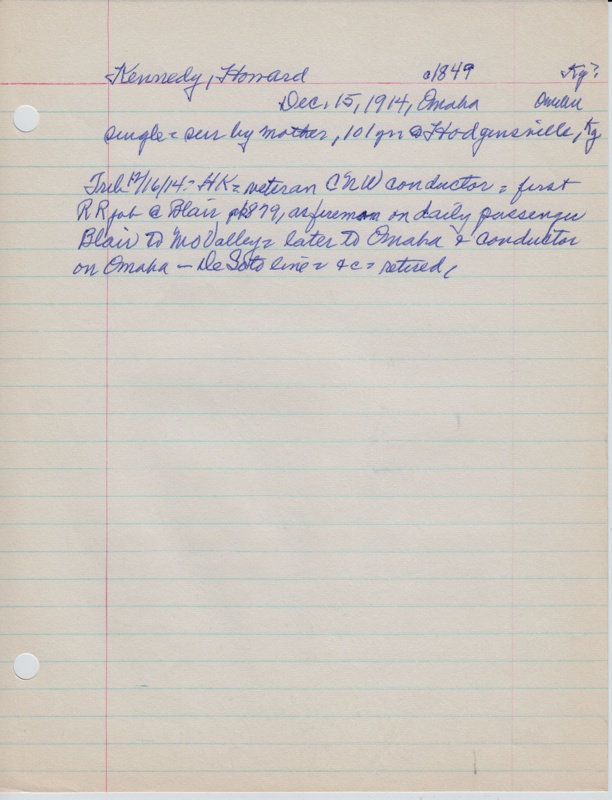 Kennedy, Howard c1849 Ky?
Dec. 15, 1914, Omaha Omaha
single = sur by mother, 101 yrs @ Hodgensville, Ky
Trib 12/16/14 - HK = veteran CNW conductor = first
RR job @ Blair, 1879, as fireman on daily passenger
Blair to Mo Valley = later to Omaha & conductor
on Omaha - De Soto line = &c = retired,